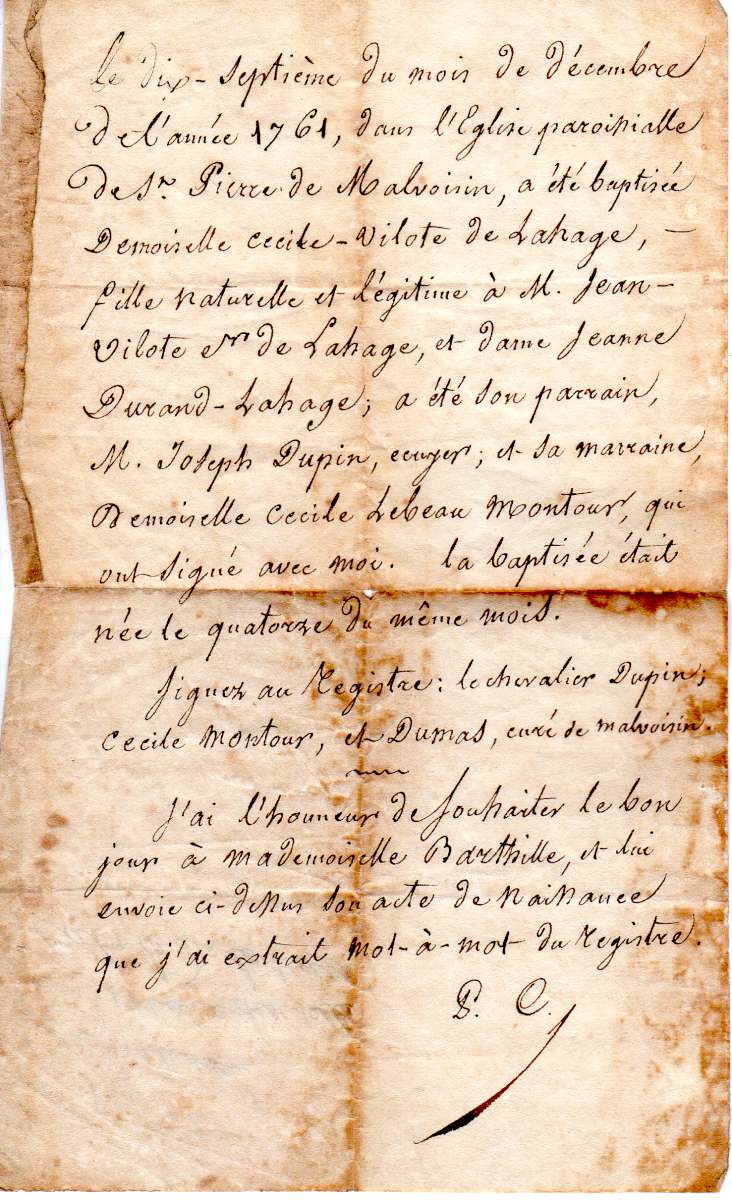 le dix-septième du mois de décembre
de l'année 1761, dans l'Eglise paroissialle
de St. Pierre de Malvoisin, a été baptisée
Demoiselle Cecile-Vilote de Lahage, -
fille naturelle et légitime à M. Jean-
Vilote er de Lahage, et dame Jeanne
Durand-Lahage; a été son parrain,
M. Joseph Dupin, ecuyer; et sa marraine,
Demoiselle Cecile Lebeau Montour, qui
ont signé avec moi. la baptisée était
née le quatorze du même mois.
Signez au Registre: le chevalier Dupin;
Cecile Montour, et Dumas, curé de malvoisin.
J'ai l'honneur de souhaiter le bon
jour à mademoiselle Barthille, et lui
envoie ci-dessus son acte de naissance
que j'ai extrait mot-à-mot du Registre.
P. C.